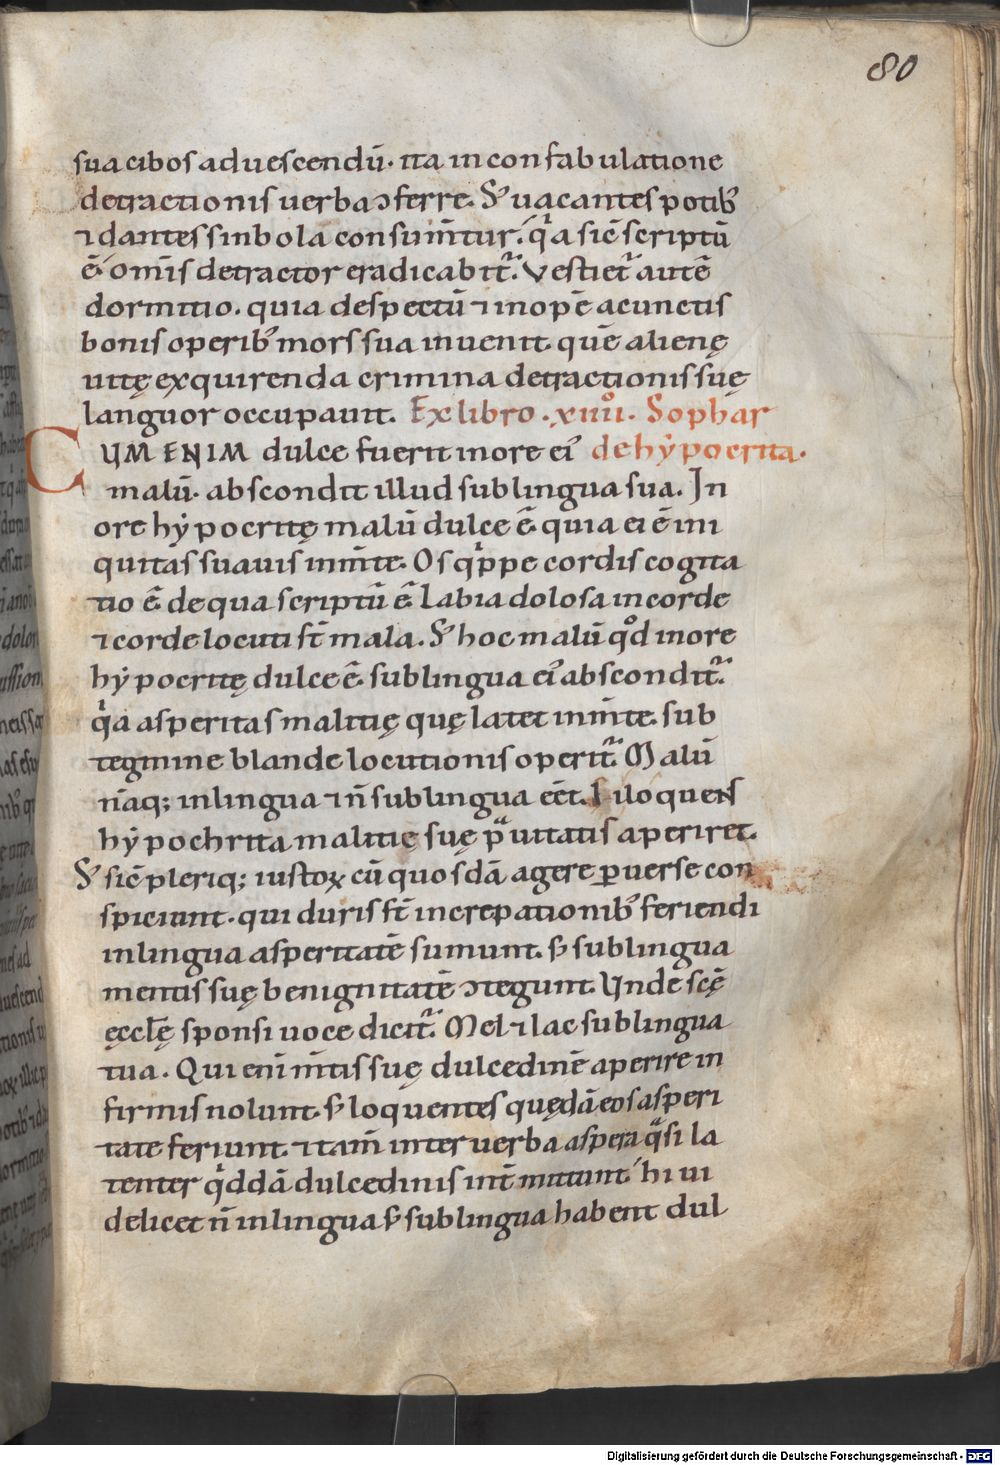 80
sua cibos ad uescendū· ita in confabulatione
detractionis uerba ɔferre. S; uacantes potib;
⁊ dantes sinbola consum̄tur. qͥa sic̄ scriptū
ē· om̄is detractor eradicabit᷑. Vestiet᷑ autē
dormitio. quia despectū ⁊ inopē a cunctis
bonis operib; mors sua inuenit. quē alienę
uitę exquirenda crimina detractionis suę
languor occupauit. Ex libro .xiiiiº. Sophar
CUM ENIM dulce fuerit in ore ei᾿ de hẏpocrita.
malū· abscondit illud sub lingua sua. In
ore hẏpocritę malū dulce ē· quia ei ē ini
quitas suauis in m̄te. Os qͥppe cordis cogita
tio ē· de qua scriptū ē· Labia dolosa in corde
⁊ corde locuti st̄ mala. S; hoc malū qͦd in ore
hẏpocritę dulce ē· sub lingua ei᾿ abscondit᷑.
qͥa asperitas malitię quę latet in m̄te· sub
tegmine blande locutionis operit᷑. Malū
n̄aq; in lingua ⁊ n̄ sub lingua eēt. si loquens
hẏpochrita malitię suę pͣuitatis aperiret.
S; sic̄ pleriq; iustoꝝ cū quosdā agere ꝑuerse con
spiciunt· qui duris st̄ increpationib; feriendi
in lingua asperitatē sumunt· s; sub lingua
mentis suę benignitatē ɔtegunt. Unde scę̄
ęccłę sponsi uoce dicit᷑. Mel ⁊ lac sub lingua
tua. Qui enī m̄tis suę dulcedinē aperire in
firmis nolunt· s; loquentes quędā eos asperi
tate feriunt· ⁊ tam̄ inter uerba aspera qͣsi la
tenter qͥddā dulcedinis int̄mittunt· hi ui
delicet n̄ in lingua s; sub lingua habent dul
Digitalisierung gefördert durch die Deutsche Forschungsgemeinschaft - DFG